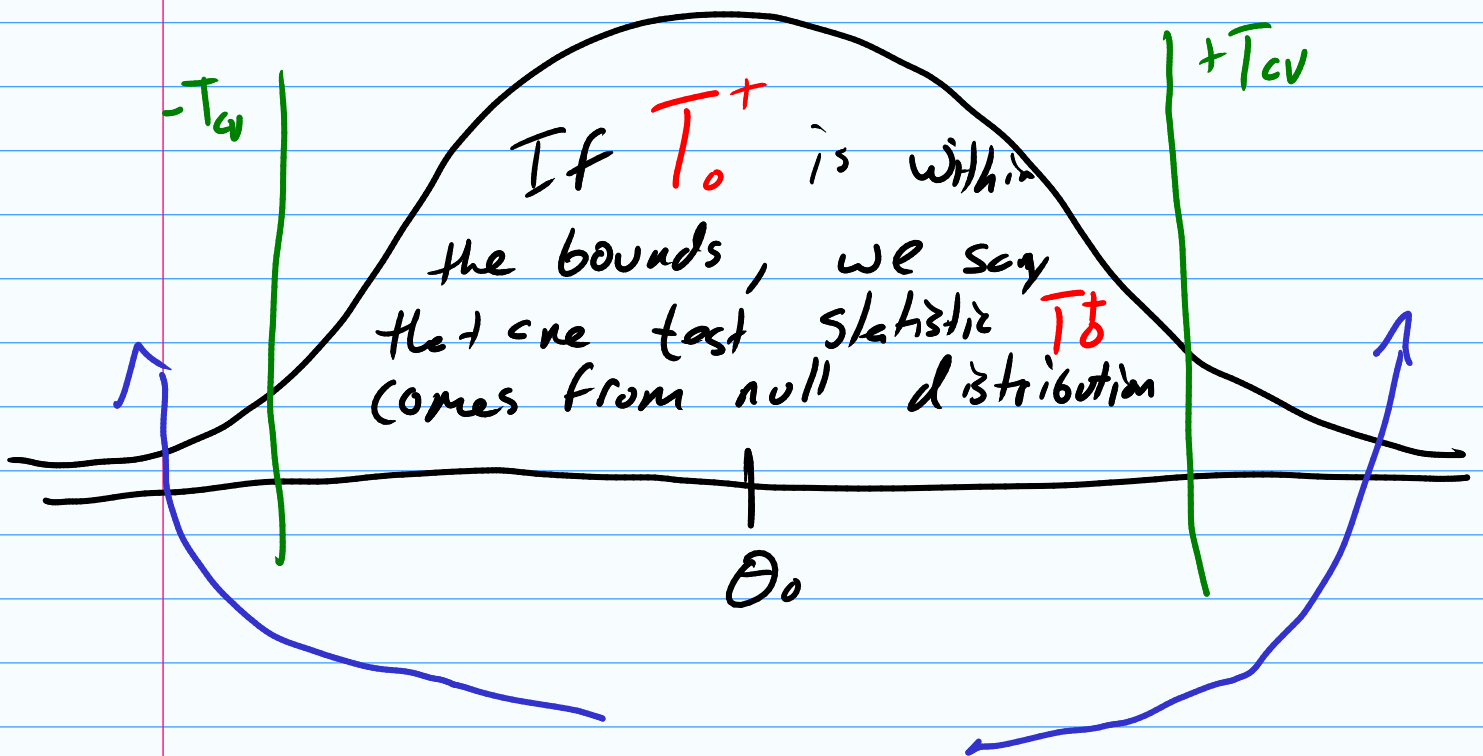 -Tcv
+Tcv
If T₀⁺ is within
the bounds, we say
that are test statistic T₀⁺
comes from null distribution
θ₀